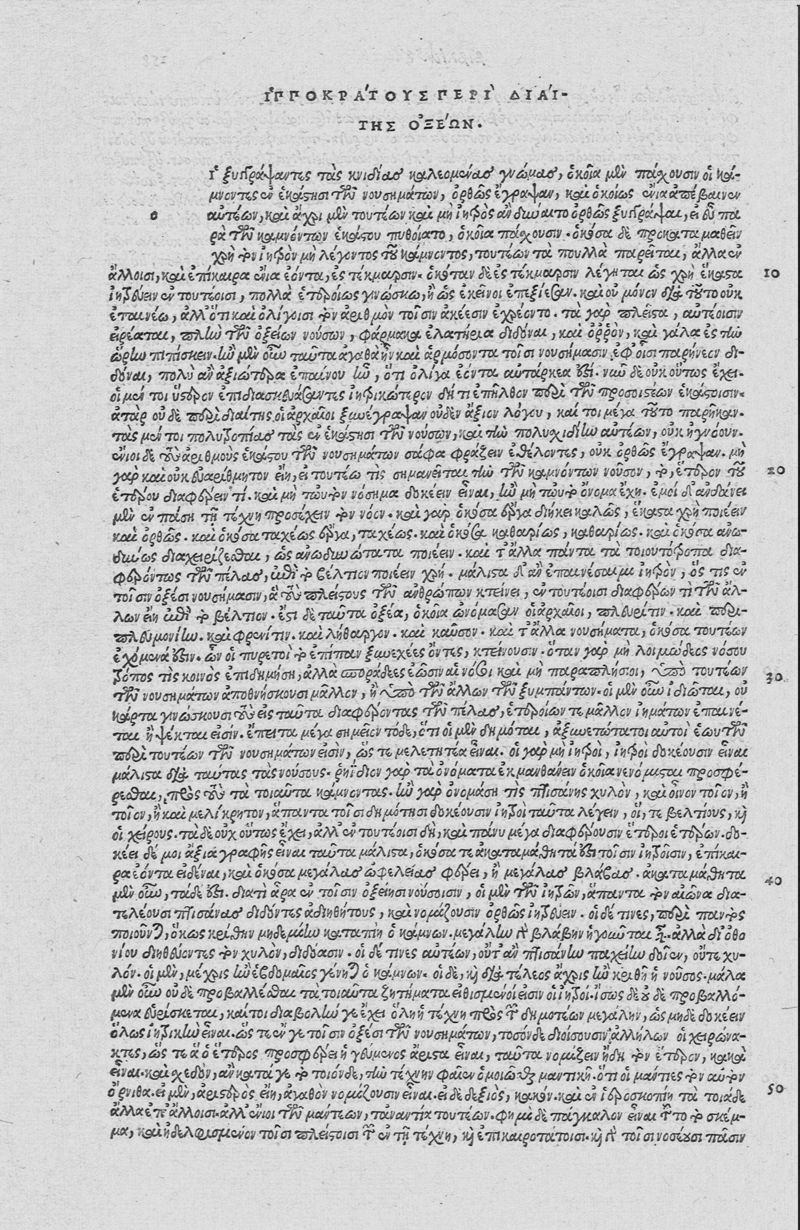 ἹΠΠΟΚΡΑ´ΤΟΥΣ ΠΕΡΙ` ΔΙΑΙ´-
ΤΗΣ ὈΞΕ´ΩΝ.
ἱ ξυγγράψαντες τὰς κνιδίας καλεομένας γνώμας, ὁκοῖα μὲν πάχουσιν οἱ κά-
μνοντες ἐν ἑκάστῃσι τῶν νουσημάτων, ὀρθῶς ἔγραψαν, καὶ ὁκοίως ἔνια ἀπέβαινεν
ο αὐτέων, καὶ ἄχρι μὲν τουτέων καὶ μὴ ἰητρὸς ἂν δύναιτο ὀρθῶς ξυγγράψαι, εἰ εὖ πα
ρὰ τῶν καμνόντων ἑκάστου πυθοίατο, ὁκοῖα πάχουσιν. ὁκόσα δὲ προκαταμαθεῖν
χρὴ τὸν ἰητρὸν μὴ λέγοντος τοῦ κάμνοντος, τουτέων τὰ πουλλὰ παρεῖται, ἄλλα ἐν
ἄλλοισι, καὶ ἐπίκαιρα ἔνια ἐόντα, ἐς τέκμαρσιν. ὁκόταν δὲ ἐς τέκμαρσιν λέγηται ὡς χρὴ ἕκαστα 10
ἰητρεύειν ἐν τουτέοισι, πολλὰ ἑτεροίως γινώσκω, ἢ ὡς ἐκεῖνοι ἐπεξίεσαν. καὶ οὐ μόνον διὰ τοῦτο οὐκ
ἐπαινέω, ἀλλ' ὅτι καὶ ὀλίγοισι τὸν ἀριθμὸν τοῖσιν ἀκέεσιν ἐχρέοντο. τὰ γὰρ πλεῖστα, αὐτέοισιν
εἰρέαται, πλὴν τῶν ὀξείων νούσων, φάρμακα ἐλατήρια διδόναι, καὶ ὀῤῥὸν, καὶ γάλα ἐς τὴν
ὥρην πιπίσκειν. ἢν μὲν οὖν ταῦτα ἀγαθὰ ἦν καὶ ἁρμόσοντα τοῖσι νουσήμασιν, ἐφ' οἷσι παρῄνεον δι-
δόναι, πολὺ ἂν ἀξιώτερα ἐπαίνου ἦν, ὅτι ὀλίγα ἐόντα αὐτάρκεά ἐστι. νῦν δὲ οὐκ οὕτως ἔχει.
οἱ μέν τοι ὕστερον ἐπιδιασκευάσαντες ἰητρικώτερον δή τι ἐπῆλθον περὶ τῶν προσοιστέων ἑκάστοισιν.
ἀτὰρ οὐδὲ περὶ διαίτης οἱ ἀρχαῖοι ξυνέγραψαν οὐδὲν ἄξιον λόγου, καί τοι μέγα τοῦτο παρῆκαν.
τὰς μέν τοι πολυτροπίας τὰς ἐν ἑκάστῃσι τῶν νούσων, καὶ τὴν πολυχιδίην αὐτέων, οὐκ ἠγνόουν.
ἔνιοι δὲ τοὺς ἀριθμοὺς ἑκάστου τῶν νουσημάτων σάφα φράζειν ἐθέλοντες, οὐκ ὀρθῶς ἔγραψαν. μὴ
γὰρ καὶ οὐκ εὐαρίθμητον εἴη, εἰ τουτέῳ τὶς σημανεῖται τὴν τῶν καμνόντων νοῦσον, τὸ, ἕτερον τοῦ 20
ἑτέρου διαφέρειν τί. καὶ μὴ τωὐτὸν νόσημα δοκέειν εἶναι, ἢν μὴ τωὐτὸ ὄνομα ἔχῃ. ἐμοὶ δ' ἀνδάνει
μὲν ἐν πάσῃ τῇ τέχνῃ προσέχειν τὸν νόον. καὶ γὰρ ὁκόσα ἔργα δήκει καλῶς, ἕκαστα χρὴ ποιέειν
καὶ ὀρθῶς. καὶ ὁκόσα ταχέως ἔργα, ταχέως. καὶ ὁκόσα καθαρίως, καθαρίως. καὶ ὁκόσα ἀνω-
δύνως διαχειρίζεσθαι, ὡς ἀνωδυνώτατα ποιέειν. καὶ τ' ἄλλα πάντα τὰ τοιουτότροπα δια-
φερόντως τῶν πέλας, ἐπὶ τὸ βέλτιον ποιέειν χρή. μάλιστα δ' ἂν ἐπαινέσαιμι ἰητρὸν, ὅς τις ἐν
τοῖσιν ὀξέσι νουσήμασιν, ἃ τοὺς πλείστους τῶν ἀνθρώπων κτείνει, ἐν τουτέοισι διαφέρων τὶ τῶν ἄλ-
λων εἴη ἐπὶ τὸ βέλτιον. ἔστι δὲ ταῦτα ὀξέα, ὁκοῖα ὠνόμασαν οἱ ἀρχαῖοι, πλευρῖτιν. καὶ περι-
πλευμονίην. καὶ φρενῖτιν. καὶ λήθαργον. καὶ καῦσον. καὶ τ' ἄλλα νουσήματα, ὁκόσα τουτέων
ἐχόμενά ἐστιν. ὧν οἱ πυρετοὶ τὸ ἐπίπαν ξυνεχέες ὄντες, κτείνουσιν. ὅταν γὰρ μὴ λοιμώδεος νόσου
τρόπος τὶς κοινὸς ἐπιδημήσῃ, ἀλλὰ σποράδες ἔωσιν αἱ νόσοι καὶ μὴ παραπλήσιοι, ὑπὸ τουτέων 30
τῶν νουσημάτων ἀποθνήσκουσι μᾶλλον, ἢ ὑπὸ τῶν ἄλλων τῶν ξυμπάντων. οἱ μὲν οὖν ἰδιῶται, οὐ
κάρτα γινώσκουσι τοὺς εἰς ταῦτα διαφέροντας τῶν πέλας, ἑτεροίων τε μᾶλλον ἰημάτων ἐπαινέ-
ται ἢ ψέκται εἰσίν. ἔπειτα μέγα σημεῖον τόδε, ὅτι οἱ μὲν δημόται, ἀξυνετώτατοι αὐτοὶ ἑωυτῶν
περὶ τουτέων τῶν νουσημάτων εἰσὶν, ὥς τε μελετητέα εἶναι. οἱ γὰρ μὴ ἰητροὶ, ἰητροὶ δοκέουσιν εἶναι
μάλιστα διὰ ταύτας τὰς νούσους. ῥηΐδιον γὰρ τὰ ὀνόματα ἐκμανθάνειν ὁκοῖα νενόμισται προσφέ-
ρεσθαι, πρὸς τοὺς τὰ τοιαῦτα κάμνοντας. ἢν γὰρ ὀνομάσῃ τὶς πτισάνης χυλὸν, καὶ οἶνον τοῖον, ἢ
τοῖον, ἢ καὶ μελίκρητον, ἅπαντα τοῖσι δημότῃσι δοκέουσιν ἰητροὶ ταῦτα λέγειν, οἵ, τε βελτίους, καὶ
οἱ χείρους. τὰ δὲ οὐχ οὕτως ἔχει, ἀλλ' ἐν τουτέοισι δὴ, καὶ πάνυ μέγα διαφέρουσιν ἕτεροι ἑτέρων. δο-
κέει δέ μοι ἄξια γραφῆς εἶναι ταῦτα μάλιστα, ὁκόσα τε ἀκαταμάθητά ἐστι τοῖσιν ἰητροῖσιν, ἐπίκαι-
ρα ἐόντα εἰδέναι, καὶ ὁκόσα μεγάλας ὠφελείας φέρει, ἢ μεγάλας βλάβας. ἀκαταμάθητα 40
μὲν οὖν, τάδε ἐστί. διατὶ ἄρα ἐν τοῖσιν ὀξείῃσι νούσοισιν, οἱ μὲν τῶν ἰητρῶν, ἅπαντα τὸν αἰῶνα δια-
τελέουσι πτισάνας διδόντες ἀδιηθήτους, καὶ νομίζουσιν ὀρθῶς ἰητρεύειν. οἱ δέ τινες, περὶ παντὸς
ποιοῦνται, ὅκως κριθὴν μηδεμίην καταπίῃ ὁ κάμνων. μεγάλην γὰρ βλάβην ἡγοῦνται εἶναι. ἀλλὰ δι' ὀθο
νίου διηθεῦντες τὸν χυλὸν, διδόασιν. οἱ δέ τινες αὐτέων, οὔτ' ἂν πτισάνην παχεῖην δοῖεν, οὔτε χυ-
λόν. οἱ μὲν, μέχρις ἢν ἑβδομαῖος γένηται ὁ κάμνων. οἱ δὲ, καὶ διὰ τέλεος ἄχρις ἢν κριθῇ ἡ νοῦσος. μάλα
μὲν οὖν οὐδὲ προβάλλεσθαι τὰ τοιαῦτα ζητήματα εἰθισμένοι εἰσὶν οἱ ἰητροί. ἴσως δὲ οὐδὲ προβαλλό-
μενα εὑρίσκεται, καίτοι διαβολήν γε ἔχει ὅλη ἡ τέχνη πρὸς τῶν δημοτέων μεγάλην, ὡς μηδὲ δοκέειν
ὅλως ἰητρικὴν εἶναι. ὥς τε ἔν γε τοῖσιν ὀξέσι τῶν νουσημάτων, τοσόνδε διοίσουσιν ἀλλήλων οἱ χειρώνα-
κτες, ὥς τε ἃ ὁ ἕτερος προσφέρει ἡγεύμενος ἄριστα εἶναι, ταῦτα νομίζειν ἤδη τὸν ἕτερον, κακὰ
εἶναι. καὶ σχεδὸν, ἂν κατά γε τὸ τοιόνδε, τὴν τέχνην φαῖεν ὁμοιῶσθαι μαντικῇ. ὅτι οἱ μάντιες τὸν αὐτὸν
ὄρνιθα. εἰ μὲν, ἀριστερὸς εἴη, ἀγαθὸν νομίζουσιν εἶναι. εἰ δὲ δεξιὸς, κακόν. καὶ ἐν ἱεροσκοπίῃ τὰ τοιάδε 50
ἄλλα ἐπ' ἄλλοισι. ἀλλ' ἔνιοι τῶν μάντεων, τἀναντία τουτέων. φημὶ δὲ πάγκαλον εἶναι τοῦτο τὸ σκέμ-
μα, καὶ ἠδελφισμένον τοῖσι πλείστοισι τῶν ἐν τῇ τέχνῃ, καὶ ἐπικαιροτάτοισι. καὶ γὰρ τοῖσι νοσέουσι πᾶσιν